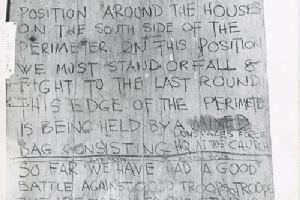 POSITION AROUND THE HOUSES
ON THE SOUTH SIDE OF THE
PERIMETER ON THIS POSITION
WE MUST STAND OR FALL &
FIGHT TO THE LAST ROUND
THIS EDGE OF THE PERIMETER
IS BEING HELD BY A MIXED
LONSDALES FORCE
BAG CONSISTING HQ AT THE CHURCH
SO FAR WE HAVE HAD A GOOD
BATTLE AGAINST GOOD TROOPS, TROOPS